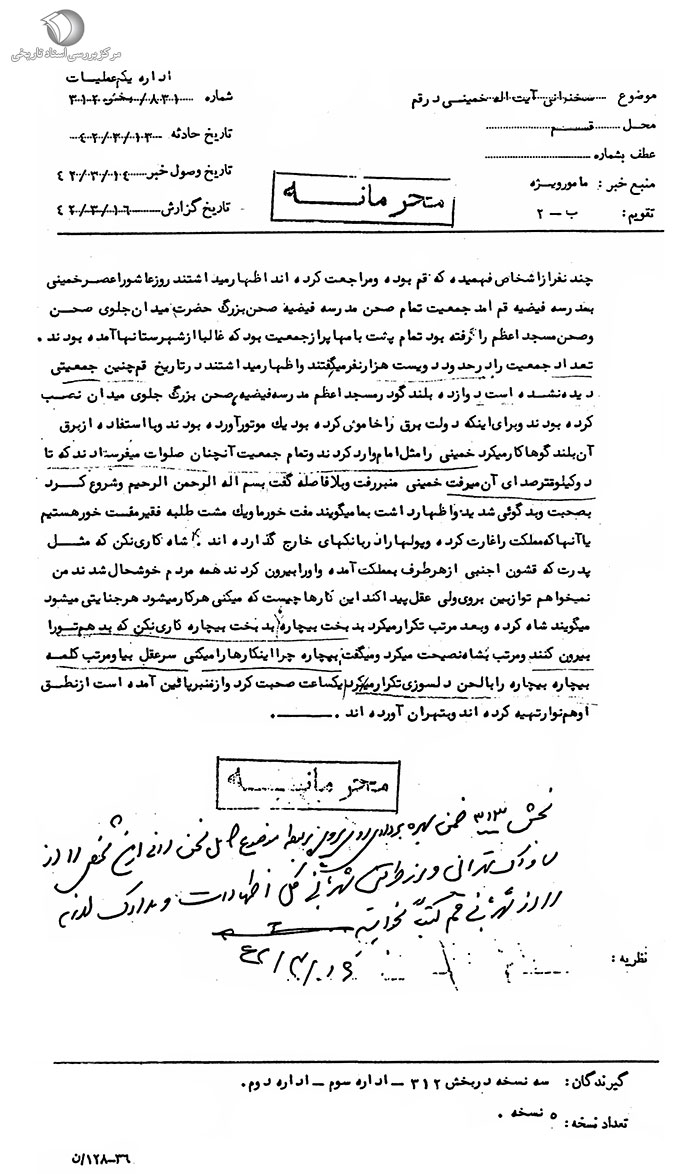 مرکز بررسی اسناد تاریخی
اداره یکم عملیات
موضوع سخنرانی آیت اله خمینی در قم
شماره ۸۳۱/بخش ۳۱۲
محل قم
تاریخ حادثه ۴۲/۳/۱۳
عطف بشماره
تاریخ وصول خبر ۴۲/۳/۱۴
منبع خبر : مامور ویژه
تاریخ گزارش ۴۲/۳/۱۶
تقویم : ب – ۲
محرمانه
چند نفر از اشخاص فهمیده که قم بوده و مراجعت کرده اند اظهار میداشتند روز عاشورا عصر خمینی
بمدرسه فیضیه قم آمد جمعیت تمام صحن مدرسه فیضیه صحن بزرگ حضرت میدان جلوی صحن
و صحن مسجد اعظم را گرفته بود تمام پشت بامها پر از جمعیت بود که غالبا از شهرستانها آمده بودند .
تعداد جمعیت را در حدود دویست هزار نفر میگفتند و اظهار میداشتند در تاریخ قم چنین جمعیتی
دیده نشده است دوازده بلندگو در مسجد اعظم مدرسه فیضیه صحن بزرگ جلوی میدان نصب
کرده بودند و برای اینکه دولت برق را خاموش کرده بود یك موتور آورده بودند و با استفاده از برق
آن بلندگوها کار میکرد خمینی را مثل امام وارد کردند و تمام جمعیت آنچنان صلوات میفرستادند که تا
دو کیلومتر صدای آن میرفت خمینی منبر رفت و بلافاصله گفت بسم اله الرحمن الرحیم و شروع کرد
بصحبت و بد گوئی شدید و اظهار داشت بما میگویند مفت خور ما و یك مشت طلبه فقیر مفت خور هستیم
یا آنها که مملکت را غارت کرده و پولها را در بانکهای خارج گذارده اند . شاه کاری نکن که مثل
پدرت که قشون اجنبی از هر طرف بمملکت آمده و او را بیرون کردند همه مردم خوشحال شدند من
نمیخواهم تو از بین بروی ولی عقل پیدا کند این کارها چیست که میکنی هر کار میشود هر جنایتی میشود
میگویند شاه کرده و بعد مرتب تکرار میکرد بد بخت بیچاره بد بخت بیچاره کاری نکن که بدهم تو را
بیرون کنند و مرتب بشاه نصیحت میکرد و میگفت بیچاره چرا اینکارها را میکنی سر عقل بیا و مرتب کلمه
بیچاره بیچاره را با لحن دلسوزی تکرار میکرد یکساعت صحبت کرد و از منبر پائین آمده است از نطق
او هم نوار تهیه کرده اند و بتهران آورده اند .
محرمانه
بخش ۳۱۲ ضمن بهره برداری
نظریه :
گیرندگان : سه نسخه در بخش ۳۱۲ – اداره سوم – اداره دوم .
تعداد نسخه : ۵ نسخه .
۳۶–۱۲۸/ن